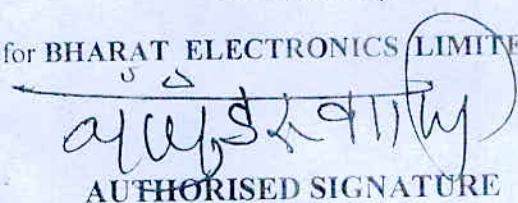 for BHARAT ELECTRONICS LIMITE
AUTHORISED SIGNATURE